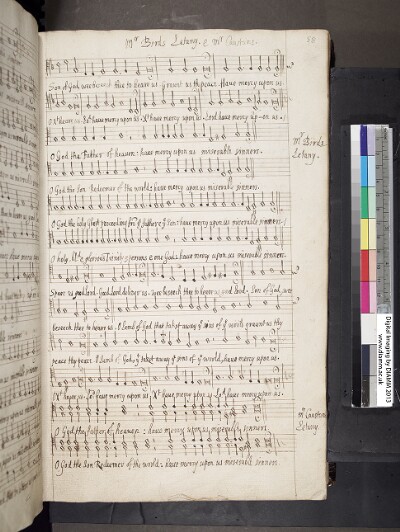 Mr Birds Letany. & Mr Caustons.
Son of God, we beseech thee to heare us. Graunt us thy peace. Have mercy upon us.
O Xt heare us. Lord have mercy upon us. Xt have mercy upon us. Lord have mercy upon us.
Mr Birds
Letany.
O God the Father of heaven: have mercy upon us miserable sinners.
O God the Son Redeemer of the world: have mercy upon us miserable sinners.
O God the holy Ghost proceeding fro ye father & ye Son: have mercy upon us miserable sinners.
O holy, & glorious Trinity 3 persons & one god: have mercy upon us miserable sinners.
Spare us good Lord. Good Lord deliver us. we beseech thee to heare us good Lord. Son of God, we
beseech thee to heare us. O Lamb of God that takest away ye sins of ye world, graunt us thy
peace. O Lamb of God, yt takest away ye sins of ye world, have mercy upon us.
O Xt heare us. Lord have mercy upon us. Xt have mercy upon us. Lord have mercy upon us.
Mr Caustons
Letany.
O God the Father of heaven: have mercy upon us miserable sinners.
O God the Son Redeemer of the world: have mercy upon us miserable sinners.
Digital Imaging by DIAMM 2013
www.diamm.ac.uk